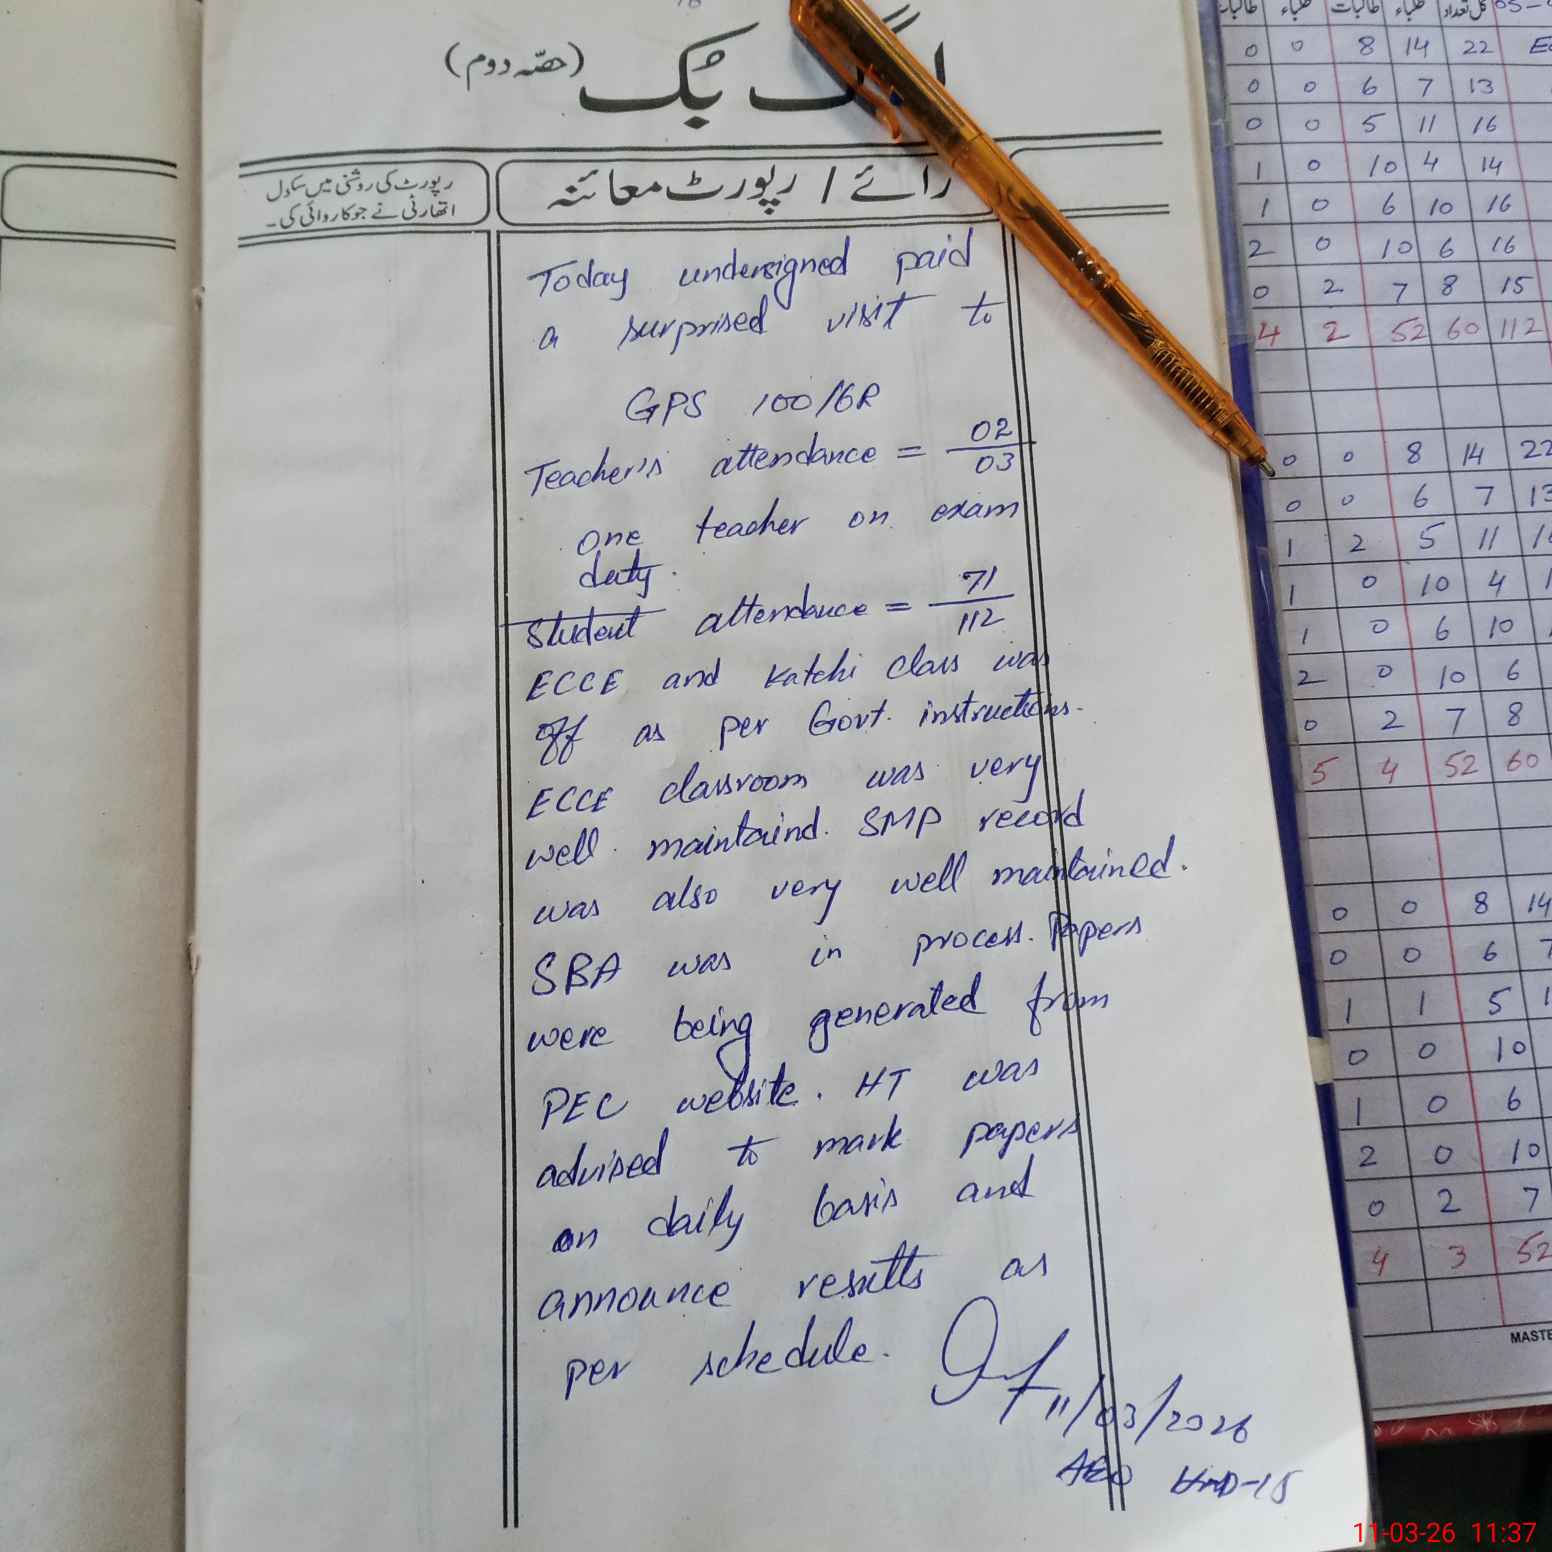 لاگ بُک (حصّہ دوم)
رپورٹ کی روشنی میں سکول
اتھارٹی نے جو کاروائی کی۔
رائے / رپورٹ معائنہ
Today undersigned paid
a surprised visit to
GPS 100/6R
Teacher's attendance = 02/03
one teacher on exam
duty.
Student attendance = 71/112
ECCE and Katchi class was
off as per Govt. instructions.
ECCE classroom was very
well maintaind. SMP record
was also very well maintained.
SBA was in process. Papers
were being generated from
PEC website. HT was
advised to mark papers
on daily basis and
announce results as
per schedule.
11/03/2026
AEO
طالبات طلباء طالبات طلباء کل تعداد
0 0 8 14 22
0 0 6 7 13
0 0 5 11 16
1 0 10 4 14
1 0 6 10 16
2 0 10 6 16
0 2 7 8 15
4 2 52 60 112
0 0 8 14 22
0 0 6 7 13
1 2 5 11
1 0 10 4
1 0 6 10
2 0 10 6
0 2 7 8
5 4 52 60
0 0 8 14
0 0 6 7
1 1 5
0 0 10
1 0 6
2 0 10
0 2 7
4 3 52
MASTE
11-03-26 11:37